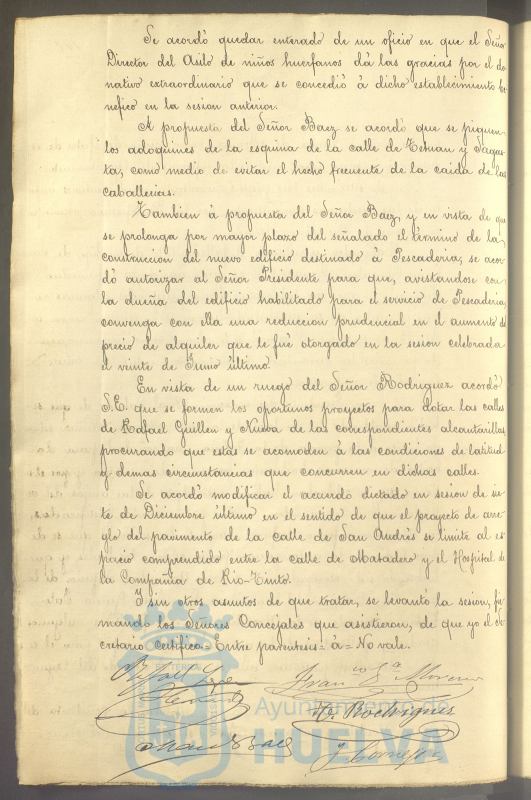 Se acordó quedar enterado de un oficio en que el Señor
Director del Asilo de niños huerfanos dá las gracias por el do
nativo extraordinario que se concedió á dicho establecimiento be
nefico en la sesion anterior.
A propuesta del Señor Baez se acordó que se piquen
los adoquines de la esquina de la calle de Tetuan y Sagas
ta, como medio de evitar el hecho frecuente de la caida de las
caballerias.
Tambien á propuesta del Señor Baez, y en vista de que
se prolonga por mayor plazo del señalado el término de la
construccion del nuevo edificio destinado á Pescaderia, se acor
dó autorizar al Señor Presidente para que, avistandose con
la dueña del edificio habilitado para el servicio de Pescaderia,
convenga con ella una reduccion prudencial en el aumento de
precio de alquiler que le fué otorgado en la sesion celebrada
el veinte de Junio último.
En vista de un ruego del Señor Rodriguez acordó
S.E. que se formen los oportunos proyectos para dotar las calles
de Rafael Guillen y Nueva de las correspondientes alcantarillas
procurando que estas se acomoden á las condiciones de latitud
y demas circunstancias que concurren en dichas calles.
Se acordó modificar el acuerdo dictado en sesion de sie
te de Diciembre último en el sentido de que el proyecto de arre
glo del pavimento de la calle de San Andrés se limite al es
pacio comprendido entre la calle de Matadero y el Hospital de
la Compañia de Rio-Tinto.
Y sin otros asuntos de que tratar, se levantó la sesion, fir
mando los Señores Concejales que asistieron, de que yo el Se
cretario certifico= Entre parentesis= á= No vale.
Franco Ga Moreno
Ro Rodriguez
Man Baez
J. Cornejo
Ayuntamiento de
HUELVA